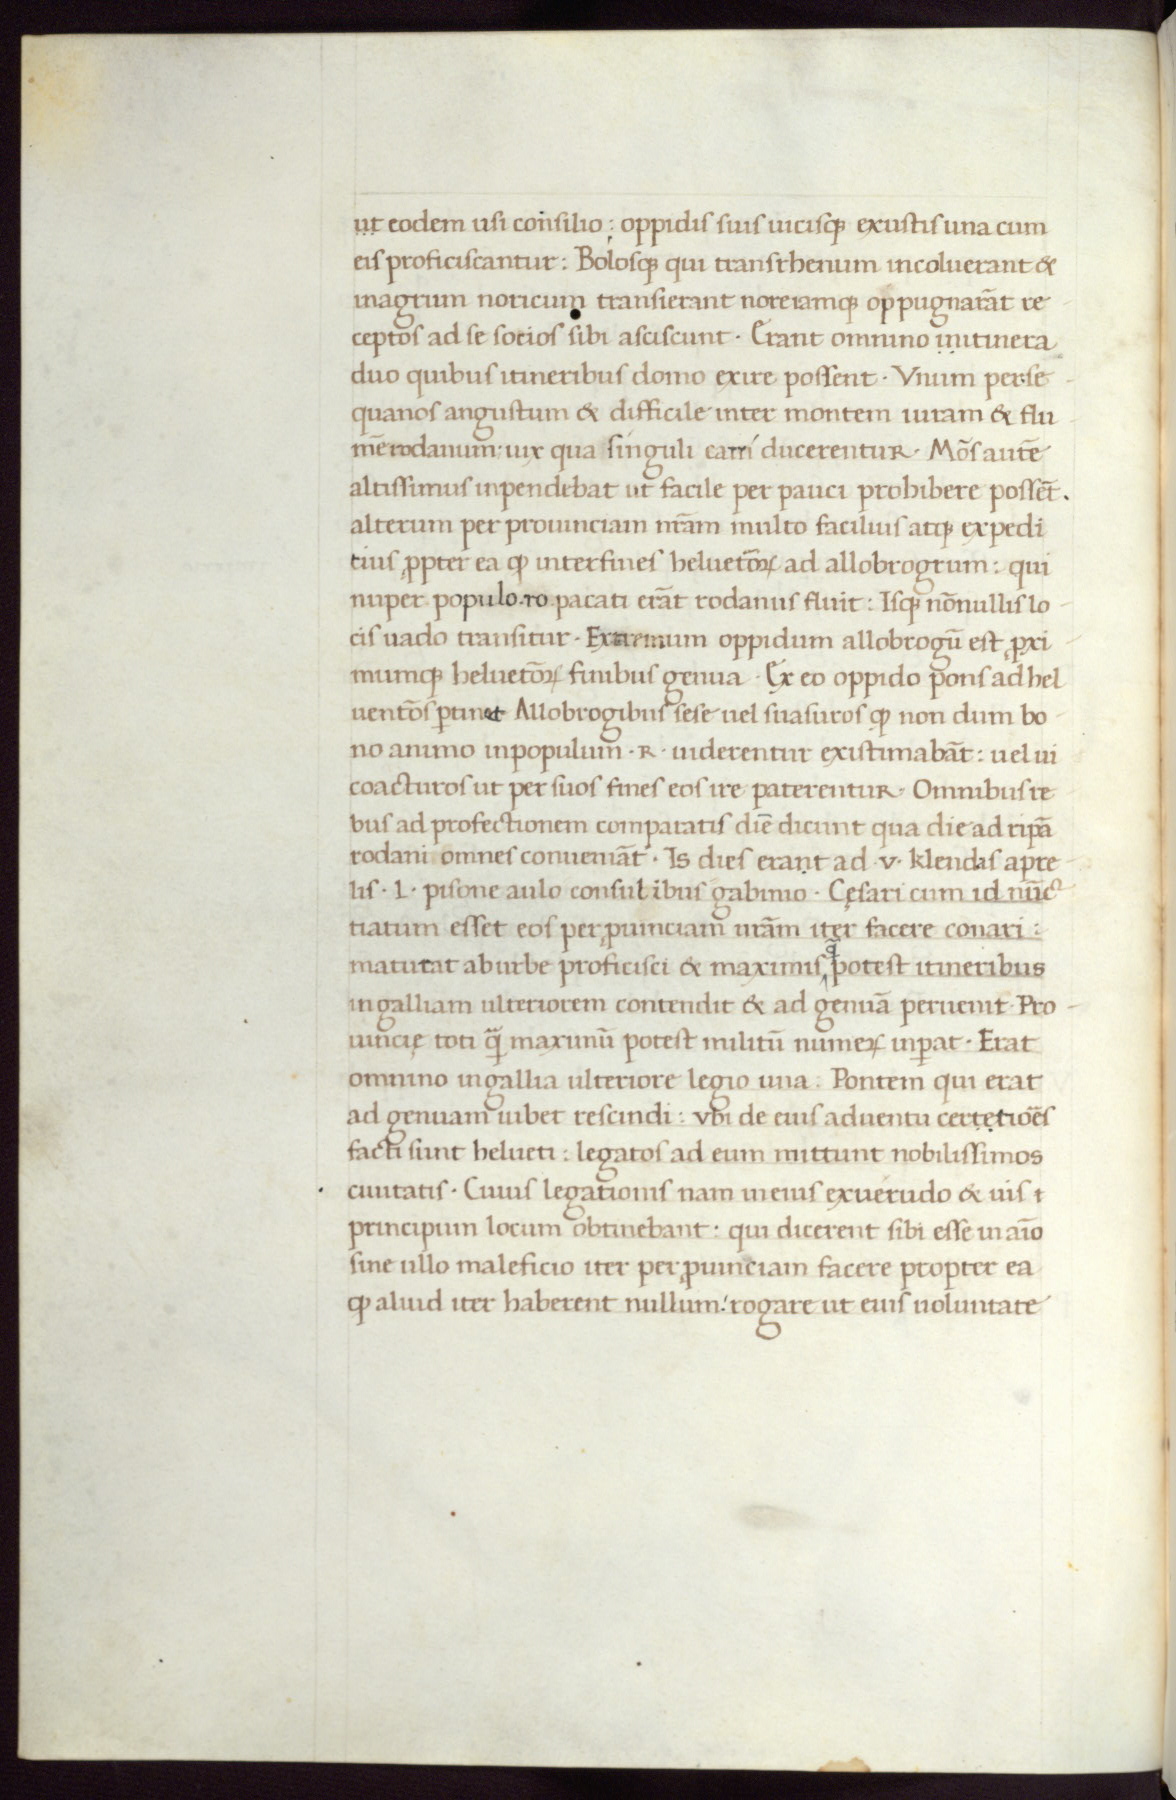 ut eodem usi consilio : oppidis suis uicisq; exustis una cum
eis proficiscantur : Boiosq; qui transrhenum incoluerant &
inagrum noricum transierant noreiamq; oppugnarāt re
ceptos ad se socios sibi asciscunt · Erant omnino initinera
duo quibus itineribus domo exire possent · Vnum per se
quanos angustum & difficile inter montem iuram & flu
mē rodanum : uix qua singuli carri ducerentur · Mōs autē
altissimus inpendebat ut facile per pauci prohibere possēt .
alterum per prouinciam nr̄am multo facilius atq; expedi
tius ꝓpter ea ꝙ interfines heluetōꝝ ad allobrogrum : qui
nuper populo · ro · pacati erāt rodanus fluit : Isq; nōnullis lo
cis uado transitur · Extremum oppidum allobrogū est ꝓxi
mumq; heluetōꝝ finibus genua · Ex eo oppido pons ad hel
uentōs ꝑtinet Allobrogibus sese uel suasuros ꝙ non dum bo
no animo inpopulum · R · uiderentur existimabāt : uel ui
coacturos ut per suos fines eos ire paterentur · Omnibus re
bus ad profectionem comparatis diē dicunt qua die ad ripā
rodani omnes conueniāt · Is dies erant ad · v · klendas apre
lis · L · pisone aulo consulibus gabinio · Cęsari cum id nūc
tiatum esset eos per ꝓuinciam nr̄am iter facere conari :
maturat aburbe proficisci & maximis q̄ potest itineribus
ingalliam ulteriorem contendit & ad genuā peruenit · Pro
uincię toti q̄ maximū potest militū numeꝝ inꝑat · Erat
omnino ingallia ulteriore legio una : Pontem qui erat
ad genuam iubet rescindi : vbi de eius aduentu certẹtiōes
facti sunt helueti : legatos ad eum mittunt nobilissimos
ciuitatis · Cuius legationis nam meius exuerudo & uis t
principum locum obtinebant : qui dicerent sibi esse in aīo
sine ullo maleficio iter per ꝓuinciam facere propter ea
ꝙ aliud iter haberent nullum : rogare ut eius uoluntate